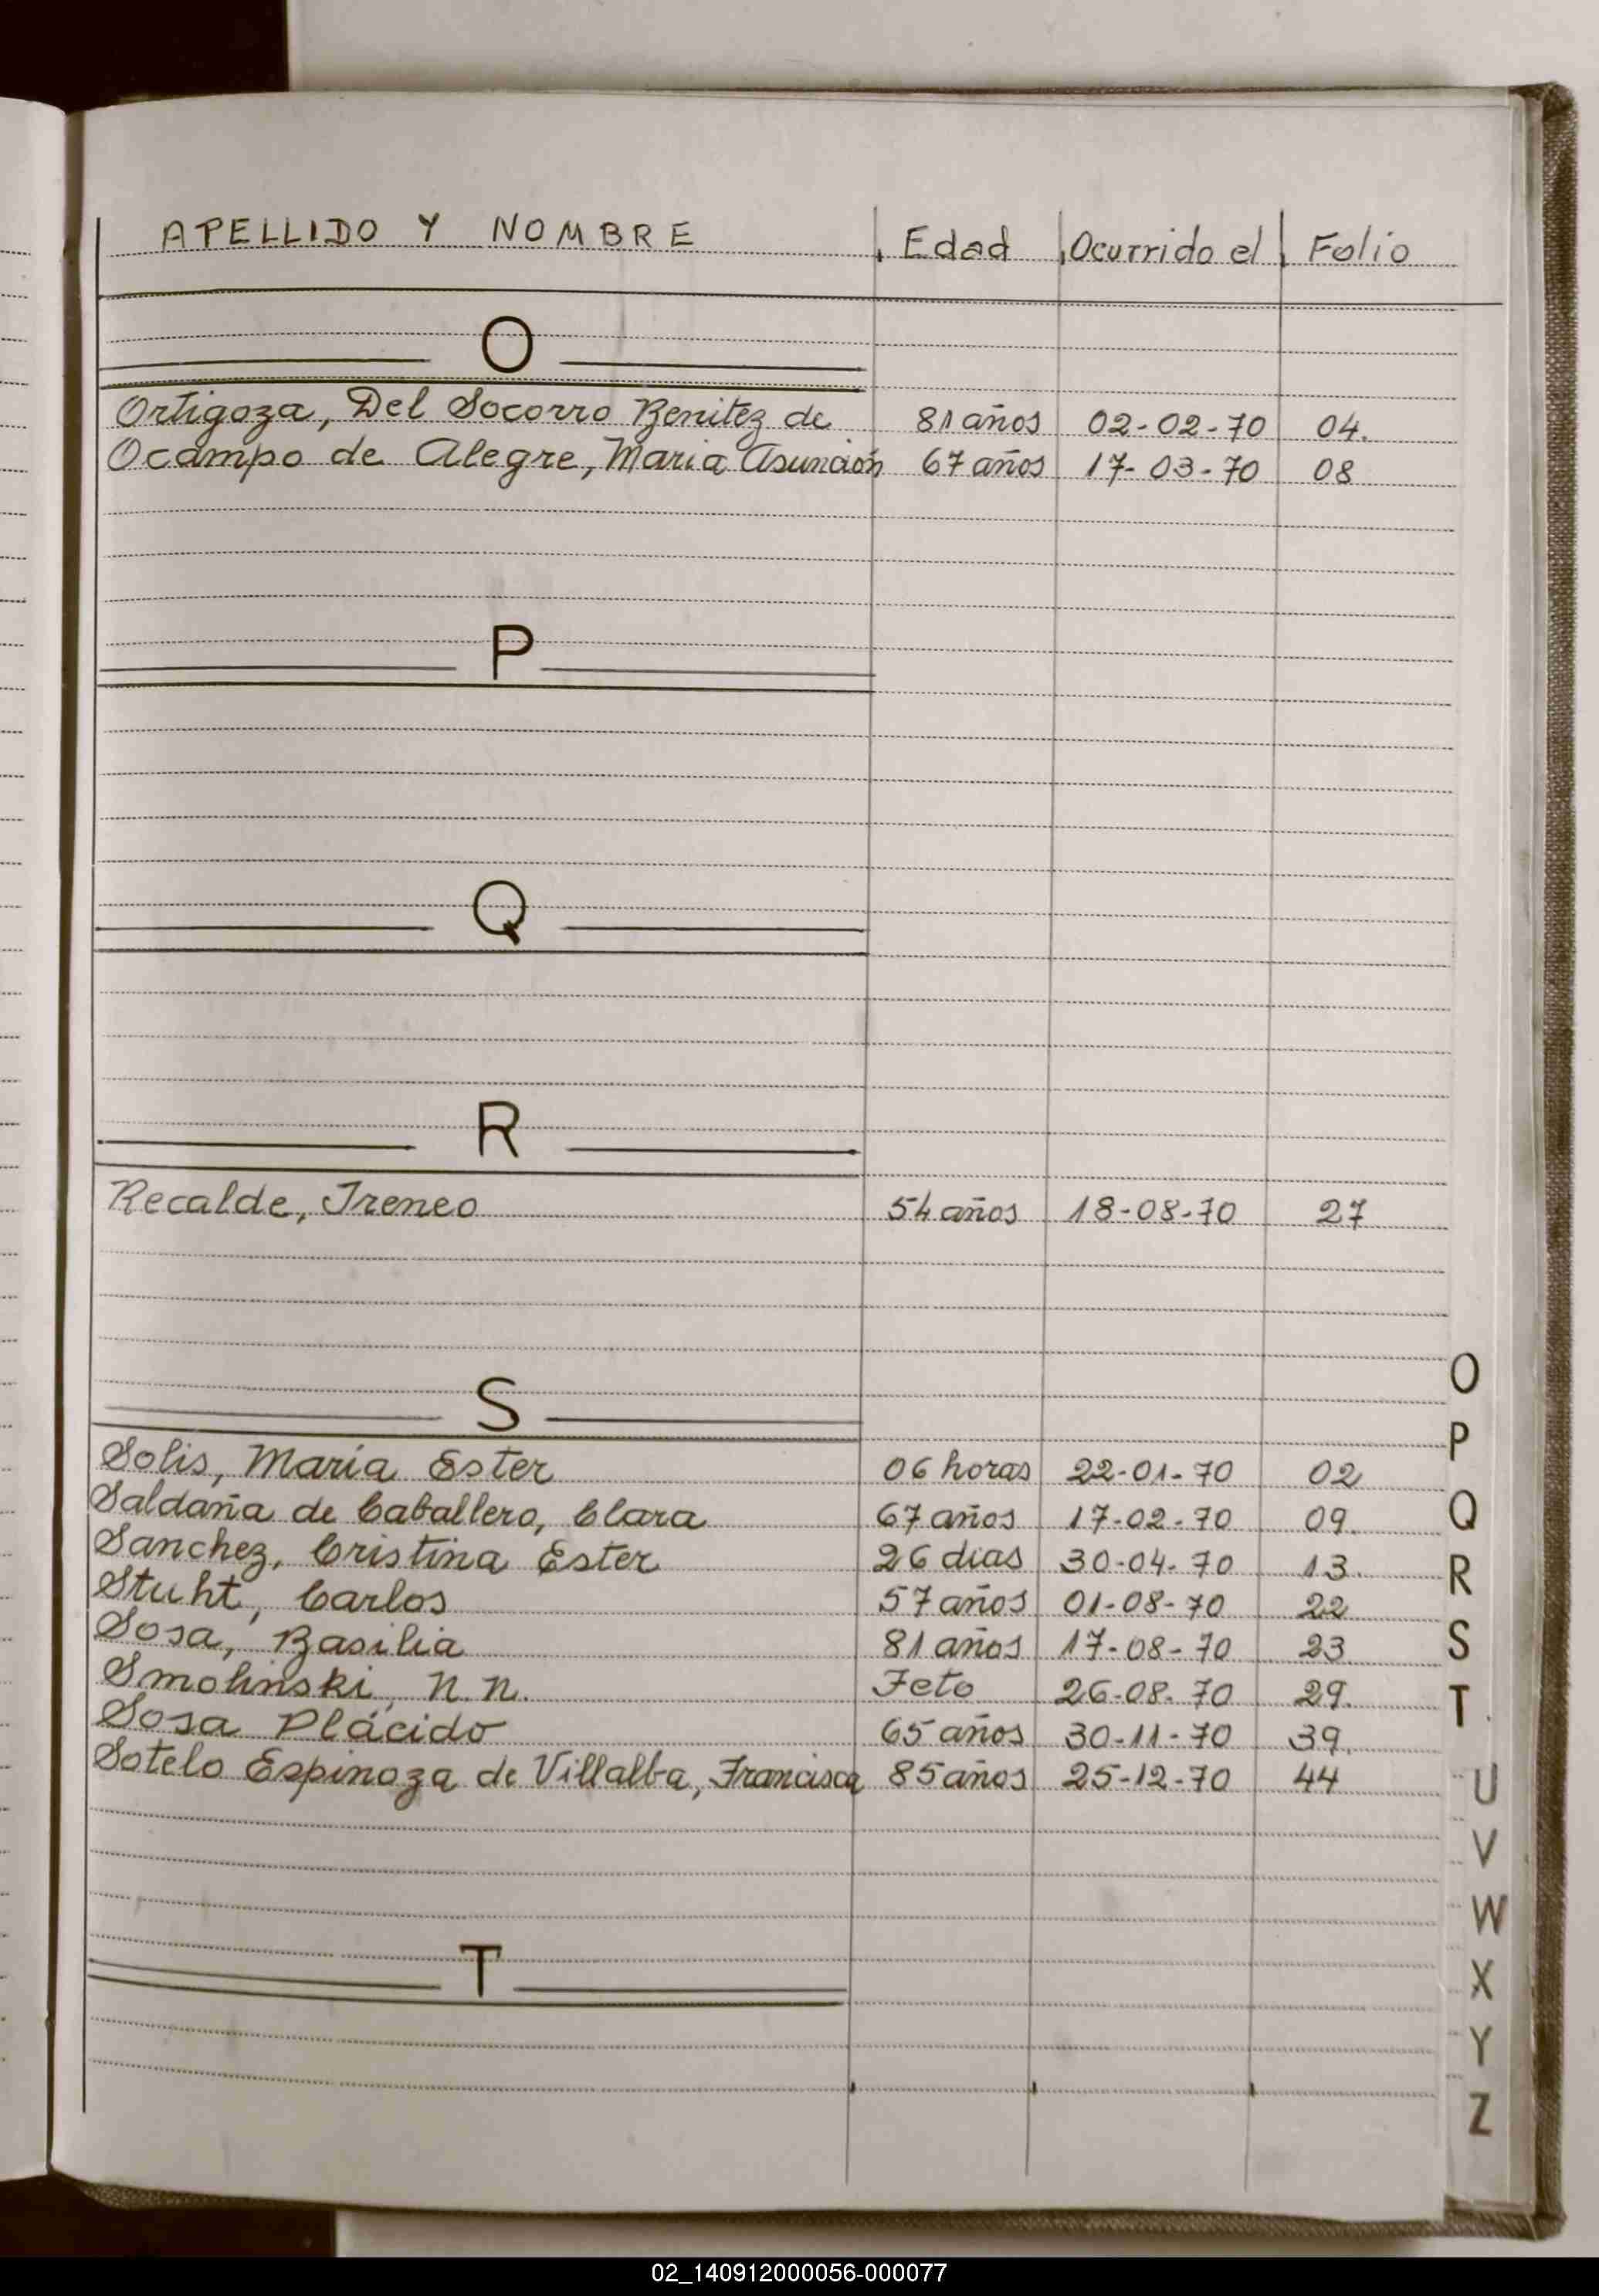 APELLIDO Y NOMBRE Edad Ocurrido el Folio
O
Ortigoza, Del Socorro Benitez de 81 años 02-02-70 04.
Ocampo de Alegre, Maria Asunción 67 años 17-03-70 08
P
Q
R
Recalde, Ireneo 54 años 18-08-70 27
S
Solis, María Ester 06 horas 22-01-70 02
Saldaña de Caballero, Clara 67 años 17-02-70 09.
Sanchez, Cristina Ester 26 dias 30-04-70 13.
Stuht, Carlos 57 años 01-08-70 22
Sosa, Basilia 81 años 17-08-70 23
Smolinski, N.N. Feto 26-08-70 29.
Sosa Plácido 65 años 30-11-70 39.
Sotelo Espinoza de Villalba, Francisca 85 años 25-12-70 44
T
O
P
Q
R
S
T
U
V
W
X
Y
Z
02_140912000056-000077